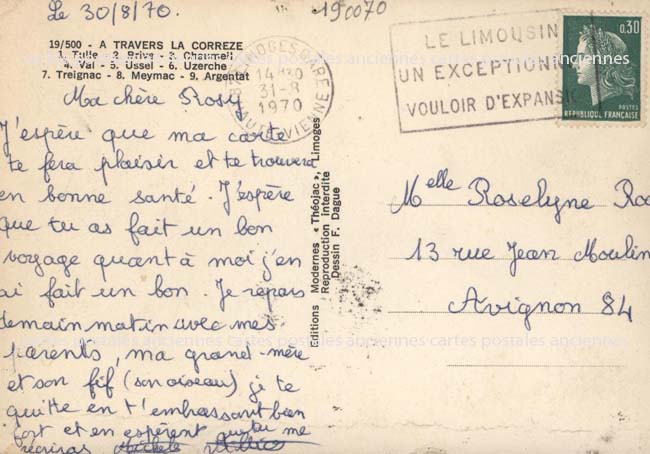 Le 30/8/70.
190070
19/500 - A TRAVERS LA CORREZE
1. Tulle - 2. Brive - 3. Chaumeil
4. Val - 5. Ussel - 6. Uzerche
7. Treignac - 8. Meymac - 9. Argentat
LIMOGES GARE
HAUTE VIENNE
14H30
31-8
1970
LE LIMOUSIN
UN EXCEPTIONN
VOULOIR D'EXPANSI
0,30
POSTES
REPUBLIQUE FRANÇAISE
Ma chère Rosy
J'espère que ma carte
te fera plaisir et te trouvera
en bonne santé. J'espère
que tu as fait un bon
voyage quant à moi j'en
ai fait un bon. Je repars
demain matin avec mes
parents, ma grand-mère
et son fif (son oiseau) je te
quitte en t'embrassant bien
fort et en espérent que tu me
récriras Michèle
Editions Modernes « Théojac », Limoges
Reproduction Interdite
Dessin F. Dague
Melle Roselyne Ro
13 rue Jean Moulin
Avignon 84
cartes postales anciennes cartes postales anciennes cartes postales anciennes